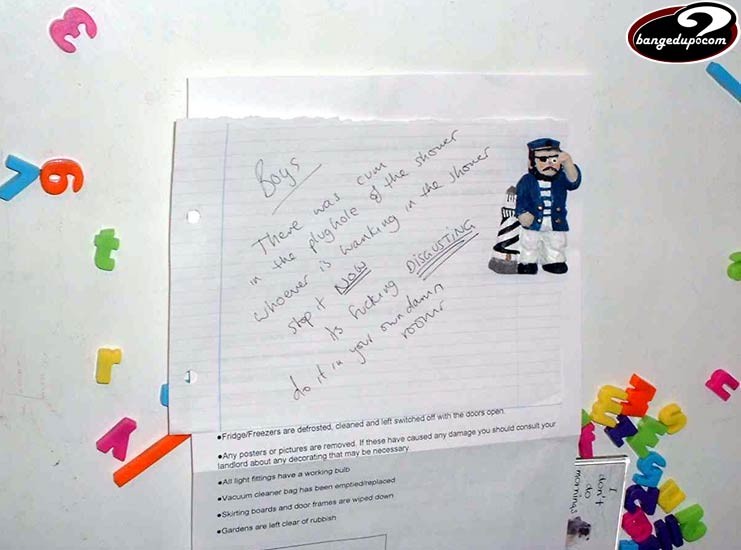 bangedup.com
Boys
There was cum
in the plughole of the shower
whoever is wanking in the shower
stop it NOW
Its fucking DISGUSTING
do it in your own damn
rooms
•Fridge/Freezers are defrosted, cleaned and left switched off with the doors open.
•Any posters or pictures are removed. If these have caused any damage you should consult your
landlord about any decorating that may be necessary.
•All light fittings have a working bulb
•Vacuum cleaner bag has been emptied/replaced
•Skirting boards and door frames are wiped down
•Gardens are left clear of rubbish
I
don't
do
mornings